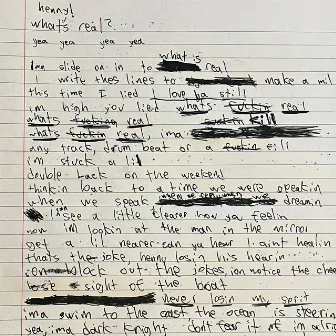 henny!
what's real?
yea yea yea yea
what is
Im slide on in to real
I write thes lines to make a mil
this time I lied I love ya still
im high you lied whats fuckin real
whats fuckin real fuckin kill
whats fuckin real, ima
any track, drum beat or a fuckin eili
im stuck a lil
double back on the weekend
thinkin back to a time we were speakin
when we speak dreamin
I see a little clearer how you feelin
now im lookin at the man in the mirror
get a lil nearer can ya hear I aint healin
thats the joke, henny losin his hearin
block out the jokes, ion notice the chee
lose sight of the boat
henny losin my sprit
ima swim to the coast the ocean is steerin
yea, ima dark knight dont fear it if im in